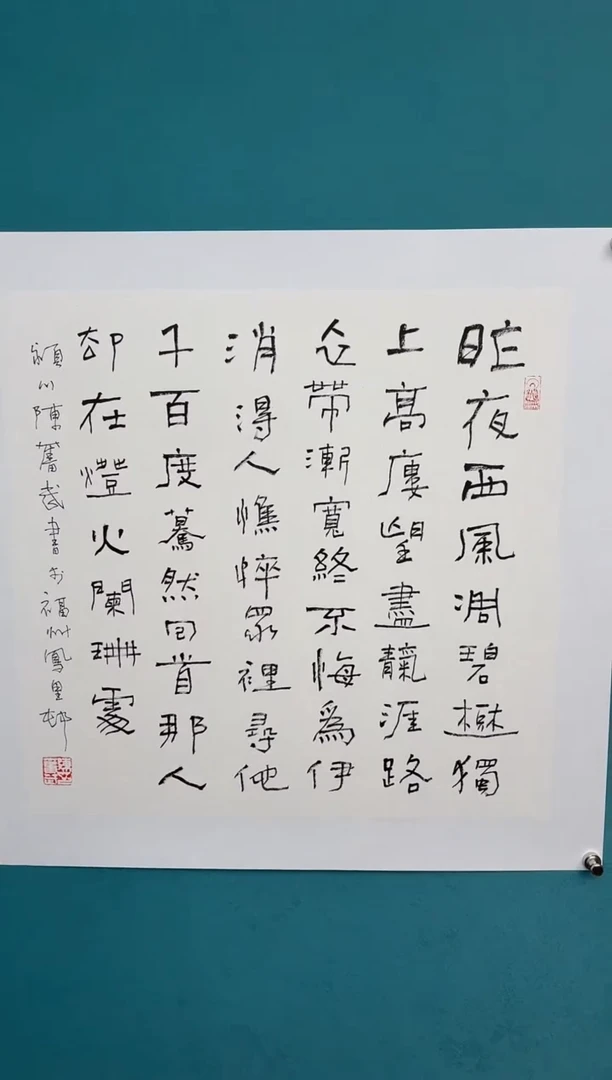 昨夜西風凋碧樹獨
上高廔望盡靝涯路
衣帶漸寬終不悔為伊
消得人憔悴眾裡尋他
千百度驀然回首那人
却在燈火闌珊處
潁川陳奮武書於福州鳳里邨